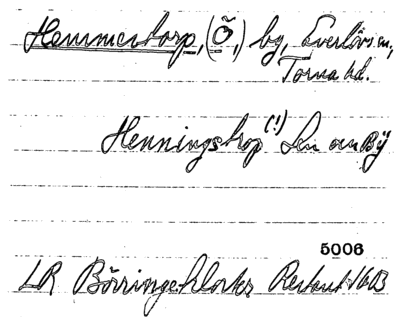 Hemmestorp, (Ö,) by, Everlövs sn,
Torna hd.
Henningstrop (!) Sn om By
5006
LR Börringeklosters Restant 1603